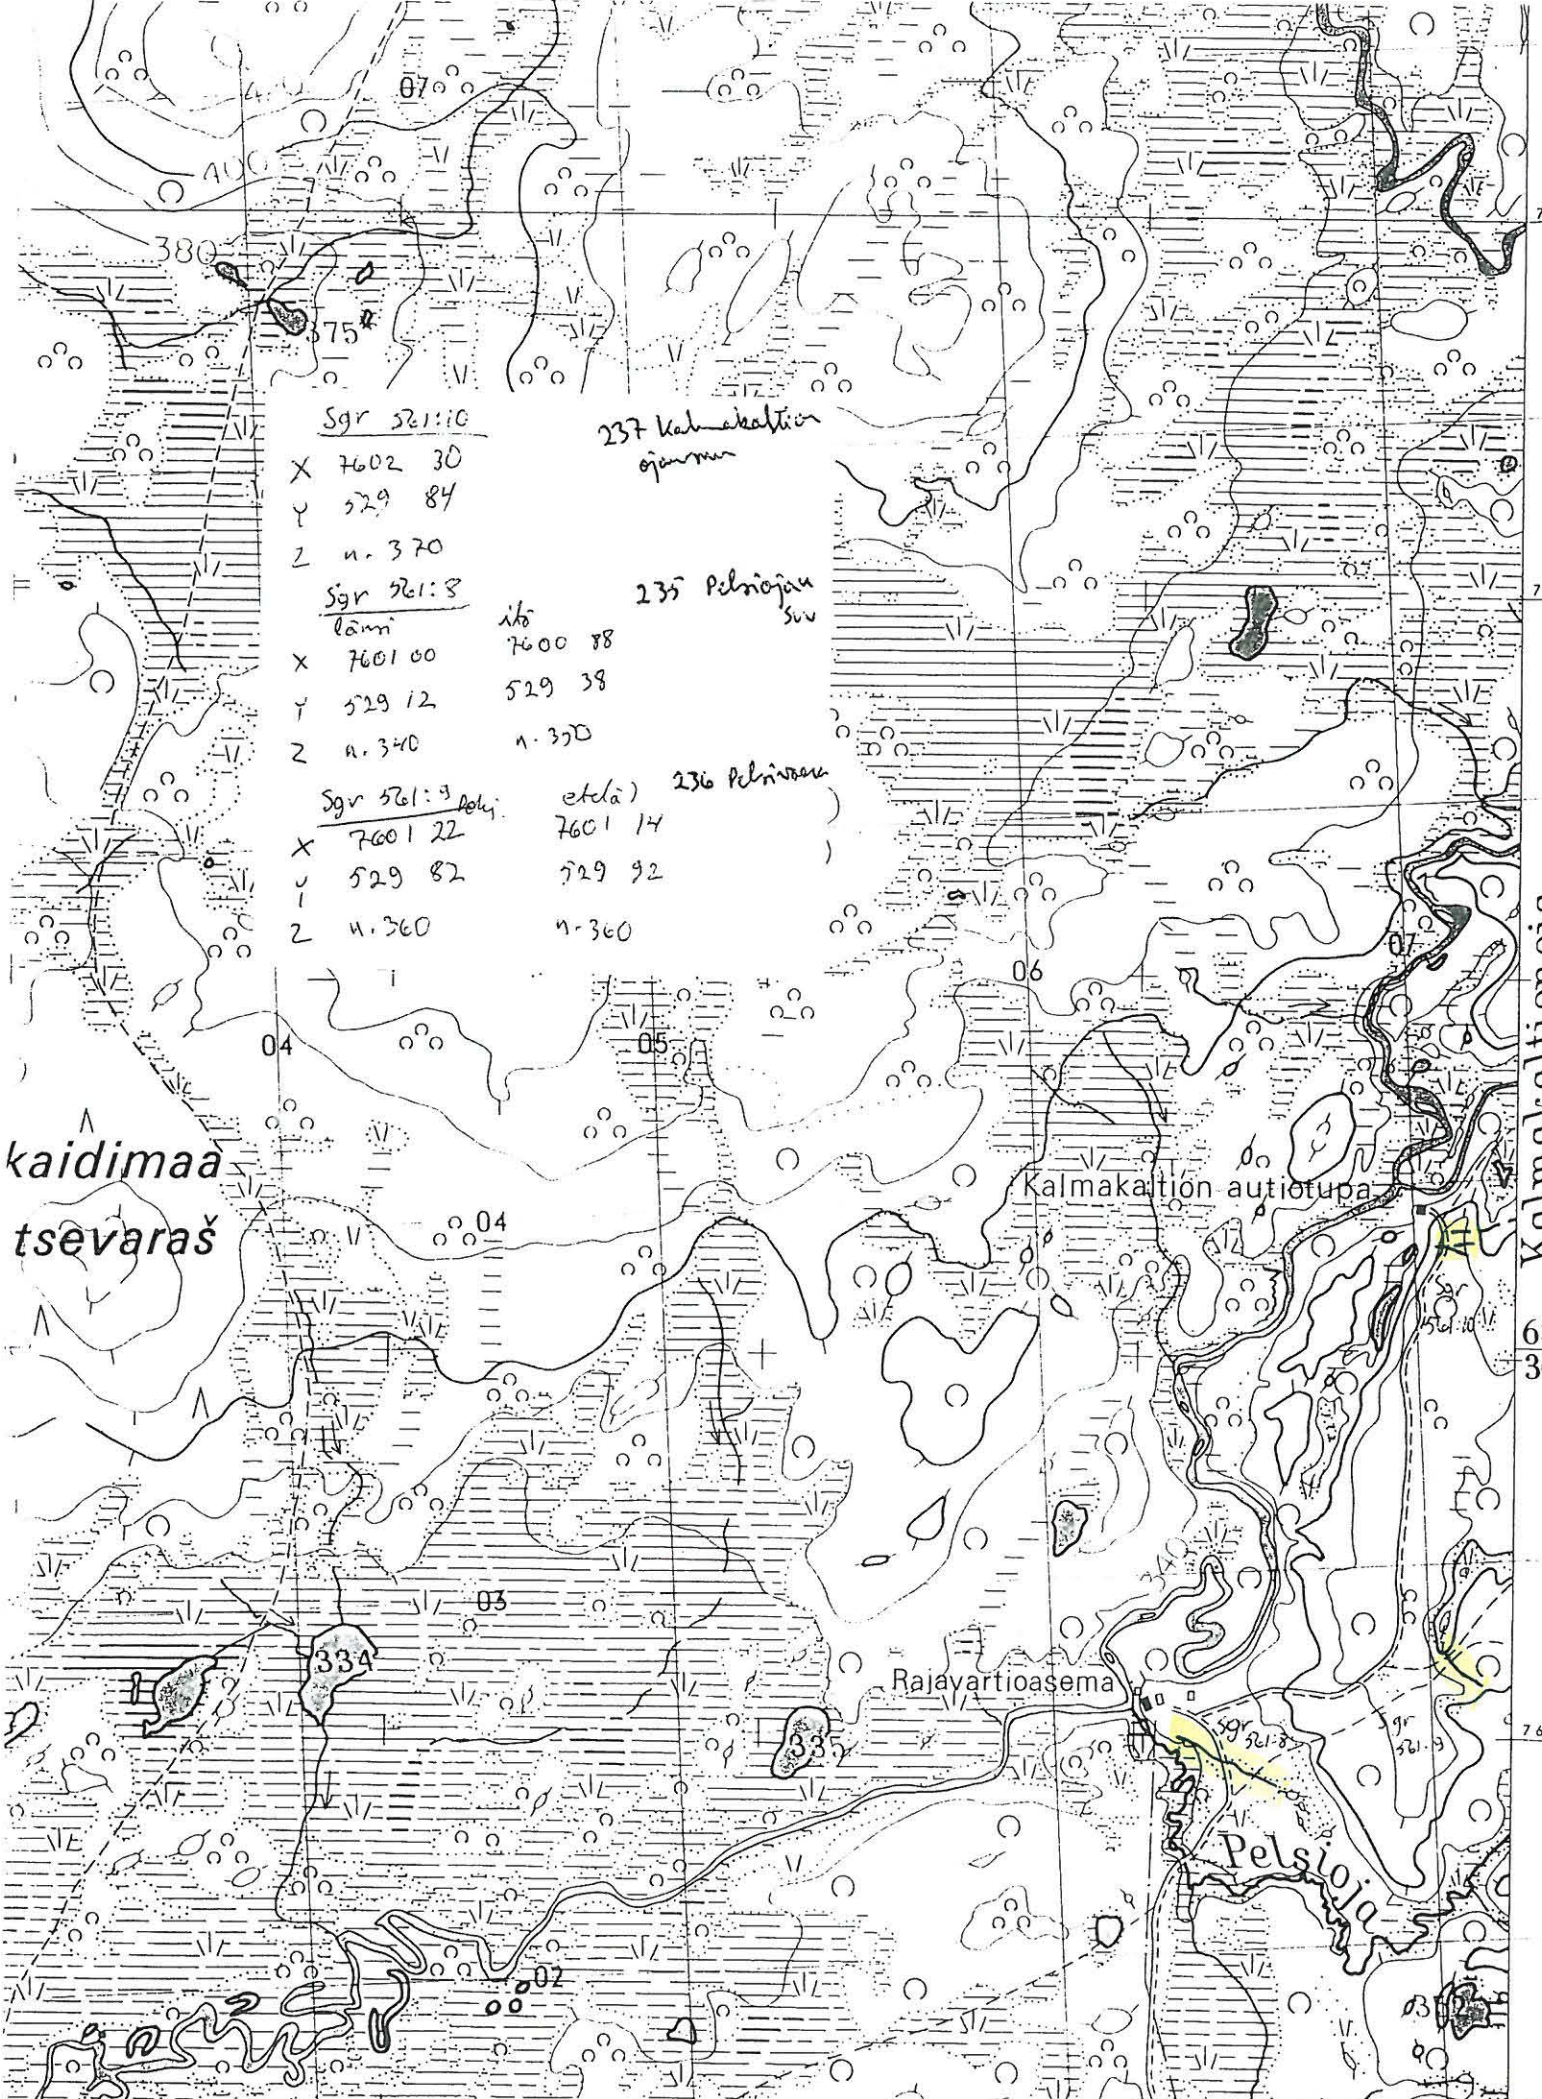 07
400
380
375
Sgr 561:10
237 Kalmakaltion
X 7602 30
Y 529 84
Z n. 370
Sgr 561:8
235 Pelsiojan
suu
länsi itä
X 7601 00 7600 88
Y 529 12 529 38
Z n. 340 n. 350
Sgr 561:9 etelä) 236 Pelsivaara
X 7601 22 7601 14
Y 529 82 529 92
Z n. 360 n. 360
06
07
04
05
kaidimaa
Kalmakaltion autiotupa
Kalmakaltionoja
tsevaraš
04
Sgr
561:10
6
3
340
03
334
Rajavartioasema
335
Sgr
561:8
Sgr
561:9
76
Pelsioja
02